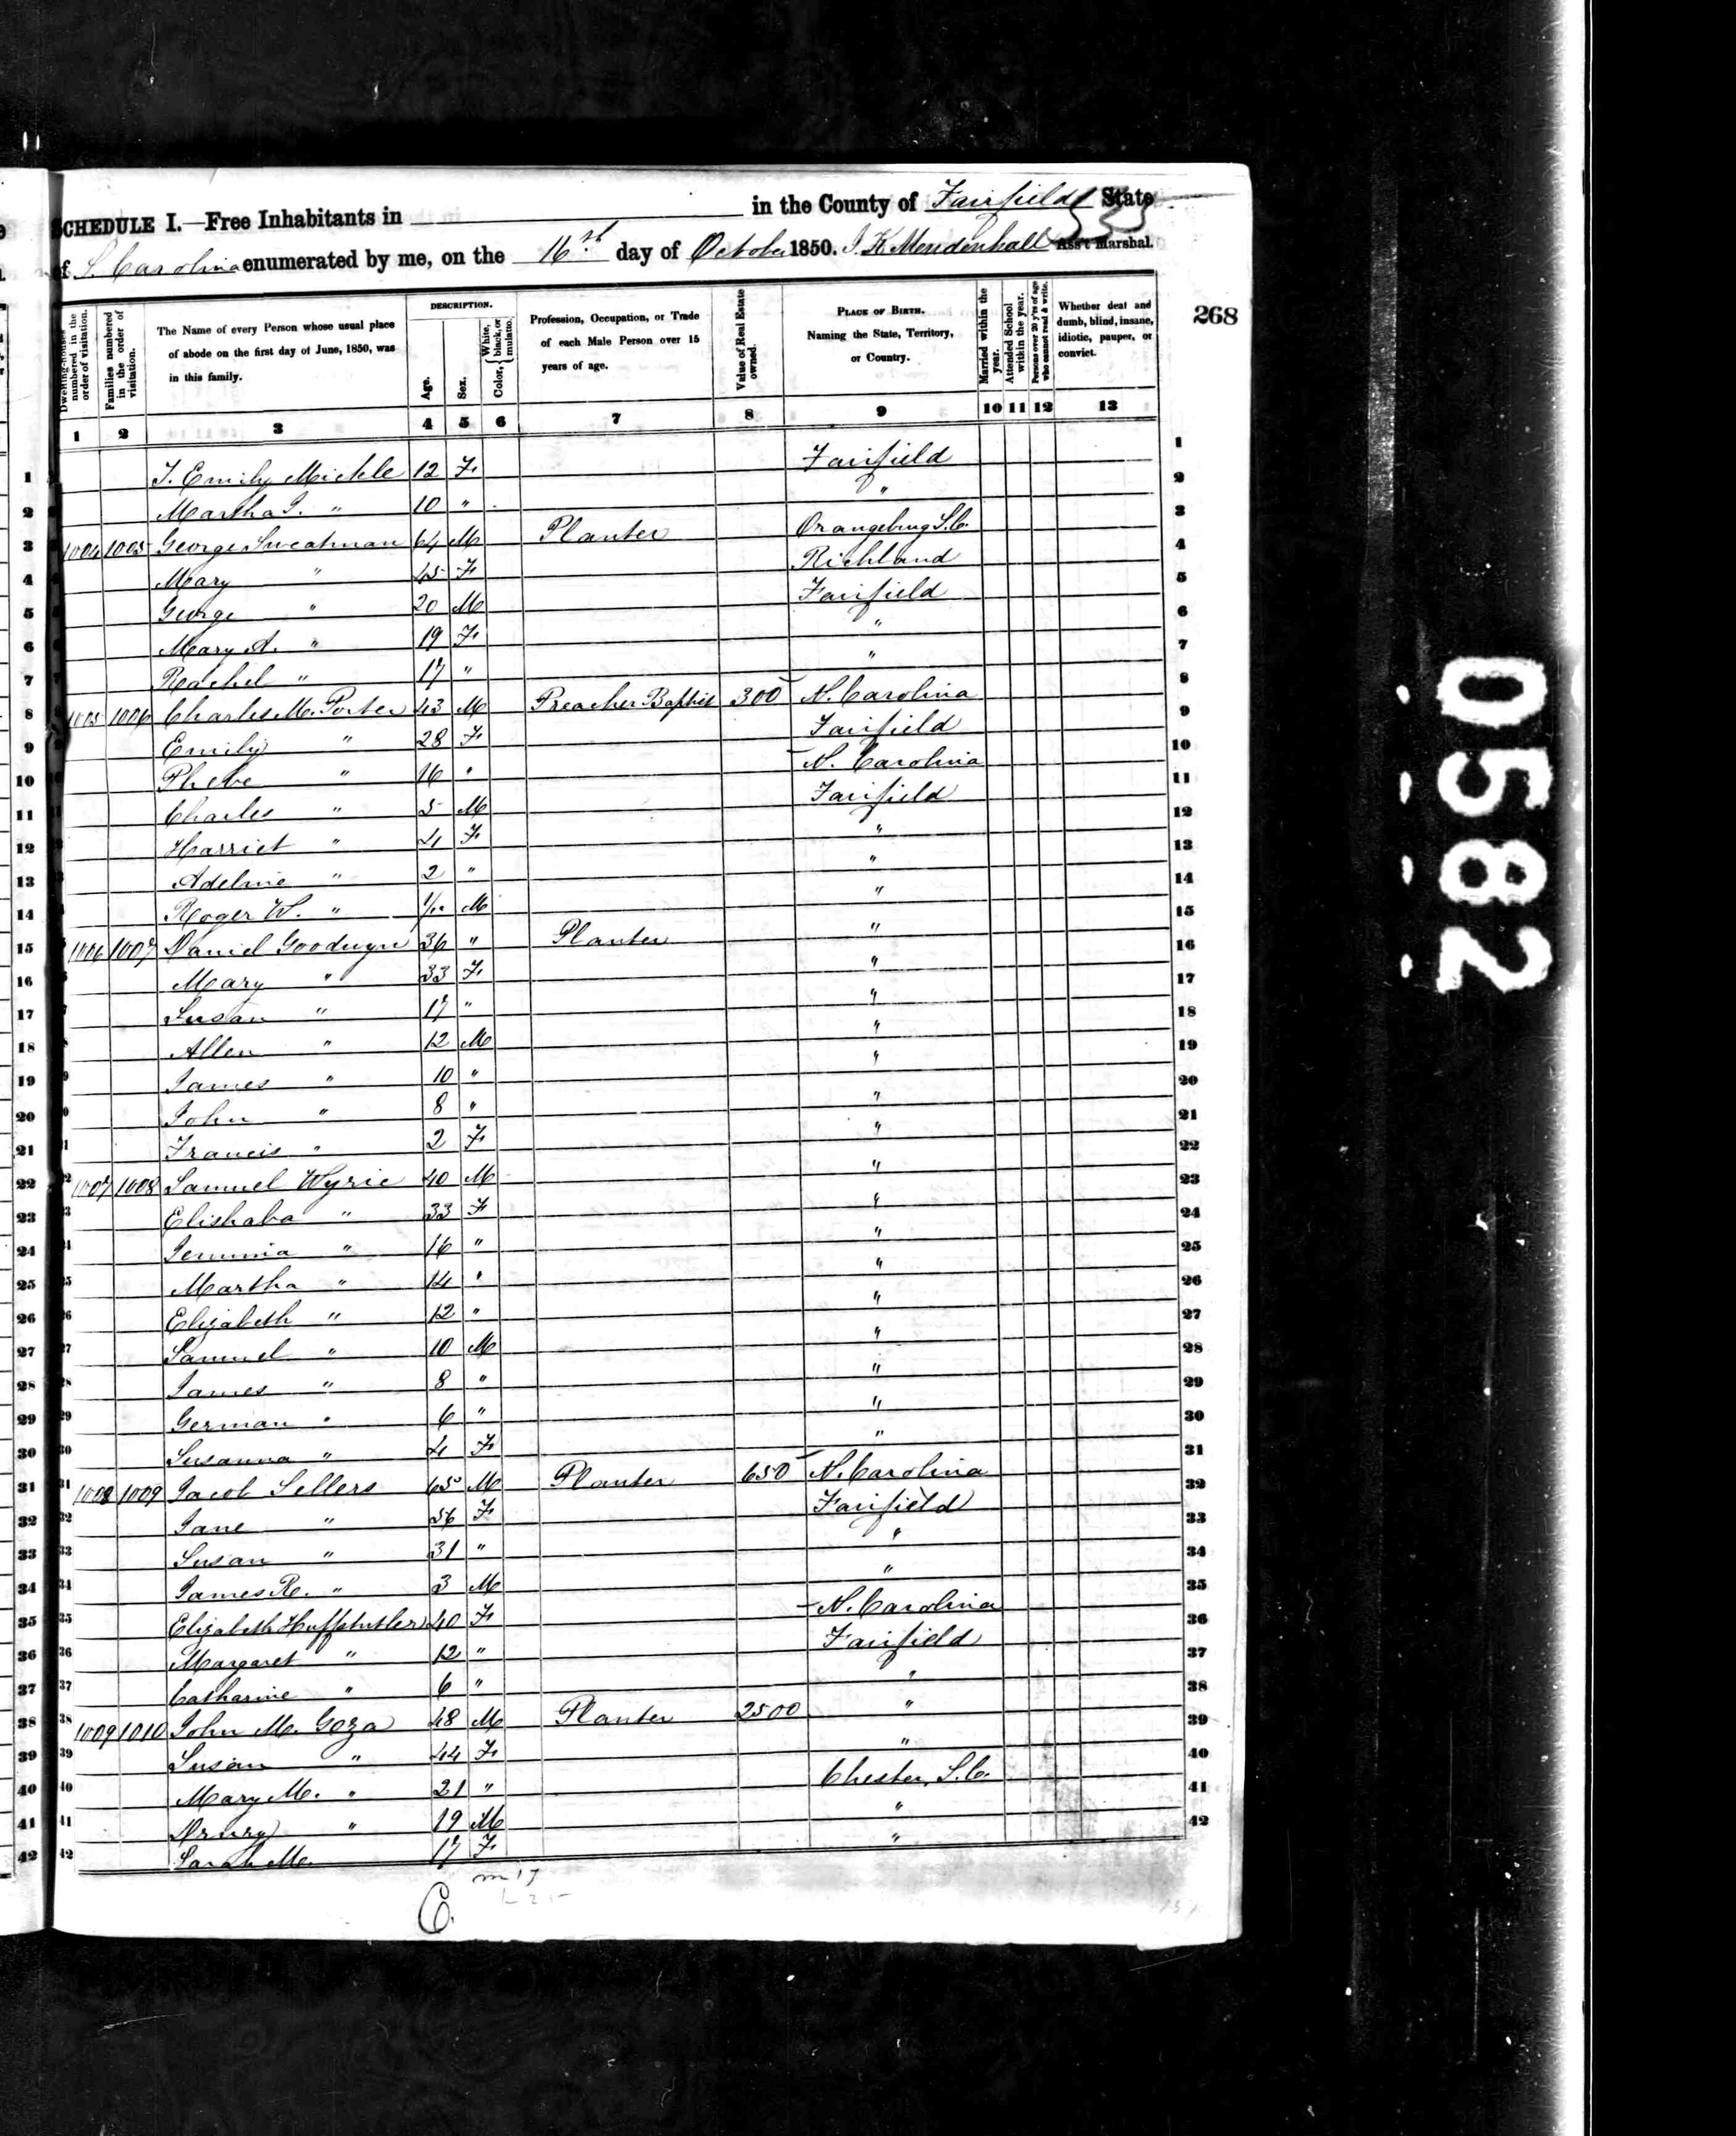 SCHEDULE I.—Free Inhabitants in in the County of Fairfield State
of S. Carolina enumerated by me, on the 16th day of October 1850. J. K. Mendenhall Ass't Marshal.
268
Dwelling-houses numbered in the order of visitation.
Families numbered in the order of visitation.
The Name of every Person whose usual place of abode on the first day of June, 1850, was in this family.
DESCRIPTION.
Age.
Sex.
Color, { White, black, or mulatto.
Profession, Occupation, or Trade of each Male Person over 15 years of age.
Value of Real Estate owned.
PLACE OF BIRTH. Naming the State, Territory, or Country.
Married within the year.
Attended School within the year.
Persons over 20 y'rs of age who cannot read & write.
Whether deaf and dumb, blind, insane, idiotic, pauper, or convict.
1 2 3 4 5 6 7 8 9 10 11 12 13
1 J. Emily Mickle 12 F Fairfield 1
2 Martha J. " 10 " " 2
3 1004 1005 George Sweatman 64 M Planter Orangebug S.C. 3
4 Mary " 45 F Richland 4
5 George " 20 M Fairfield 5
6 Mary A. " 19 F " 6
7 Rachel " 17 " " 7
8 1005 1006 Charles M. Porter 43 M Preacher Baptist 300 N. Carolina 8
9 Emily " 28 F Fairfield 9
10 Phebe " 16 " N. Carolina 10
11 Charles " 5 M Fairfield 11
12 Harriet " 4 F " 12
13 Adeline " 2 " " 13
14 Roger W. " 1/12 M " 14
15 1006 1007 Daniel Goodwyn 36 " Planter " 15
16 Mary " 33 F " 16
17 Susan " 17 " " 17
18 Allen " 12 M " 18
19 James " 10 " " 19
20 John " 8 " " 20
21 Francis " 2 F " 21
22 1007 1008 Samuel Wyrie 40 M " 22
23 Elishaba " 33 F " 23
24 Jemima " 16 " " 24
25 Martha " 14 " " 25
26 Elizabeth " 12 " " 26
27 Samuel " 10 M " 27
28 James " 8 " " 28
29 German " 6 " " 29
30 Susanna " 4 F " 30
31 1008 1009 Jacob Sellers 65 M Planter 650 N. Carolina 31
32 Jane " 56 F Fairfield 32
33 Susan " 31 " " 33
34 James R. " 3 M " 34
35 Elizabeth Huffstutler 40 F N. Carolina 35
36 Margaret " 12 " Fairfield 36
37 Catharine " 6 " " 37
38 1009 1010 John M. Goza 48 M Planter 2500 " 38
39 Susan " 44 F " 39
40 Mary M. " 21 " Chester, S.C. 40
41 Drury " 19 M " 41
42 Sarah M. 17 F " 42
m 17
C.
0582